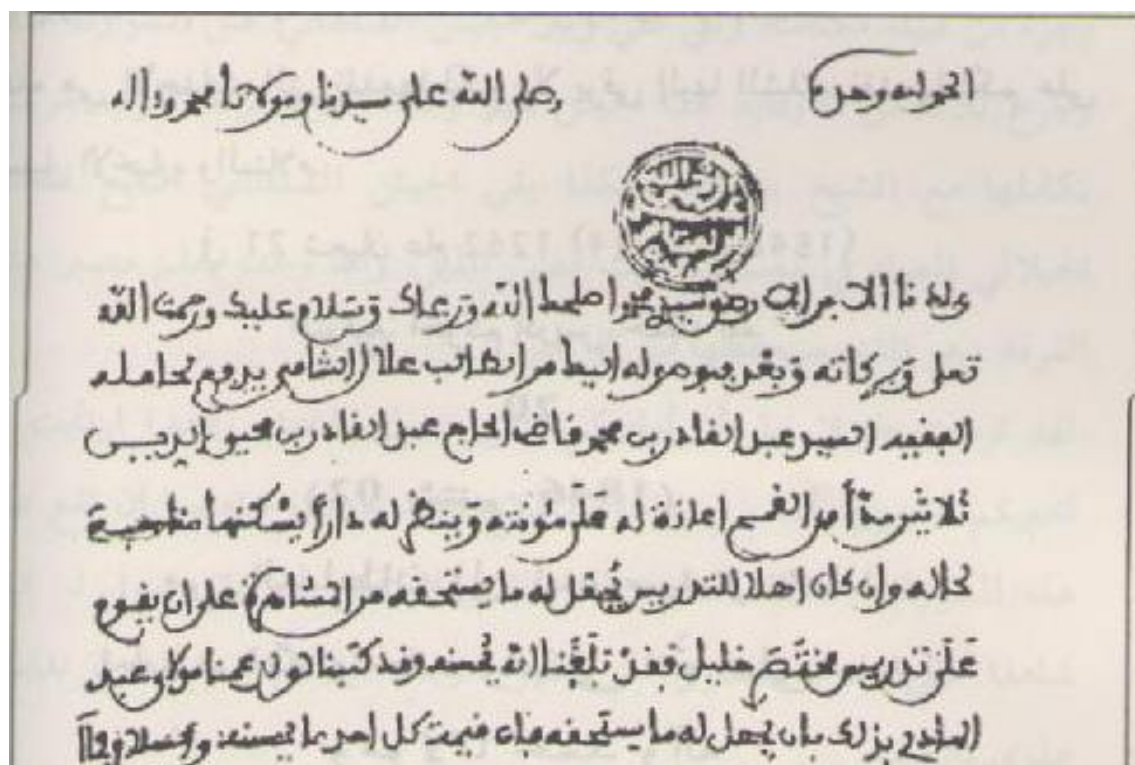 الحمد لله وحده وصلى الله على سيدنا ومولانا محمد وآله
ولدنا الأبر الأرضى سيدي محمد أصلحك الله ورعاك وسلام عليك ورحمت الله
تعلى وبركاته وبعد فبوصوله إليك مر الطالب علال الشامي يدفع لحامله
الفقيه السيد عبد القادر بن محمد قاضي الحاج عبد القادر بن محيي الدين
ثلاثين مدا من القمح إعانة له على مئونته وينظر له دارا يسكنها مناسبة
لحاله وإن كان أهلا للتدريس يجعل له ما يستحقه مر الشامي على أن يقوم
على تدريس مختصر خليل فقد بلغنا أنه يحسنه وقد كتبنا لولد عمنا مولاي عبد
الهادي بذلك بأن يجعل له ما يستحقه فإن قيمة كل امرئ ما يحسنه والسلام في